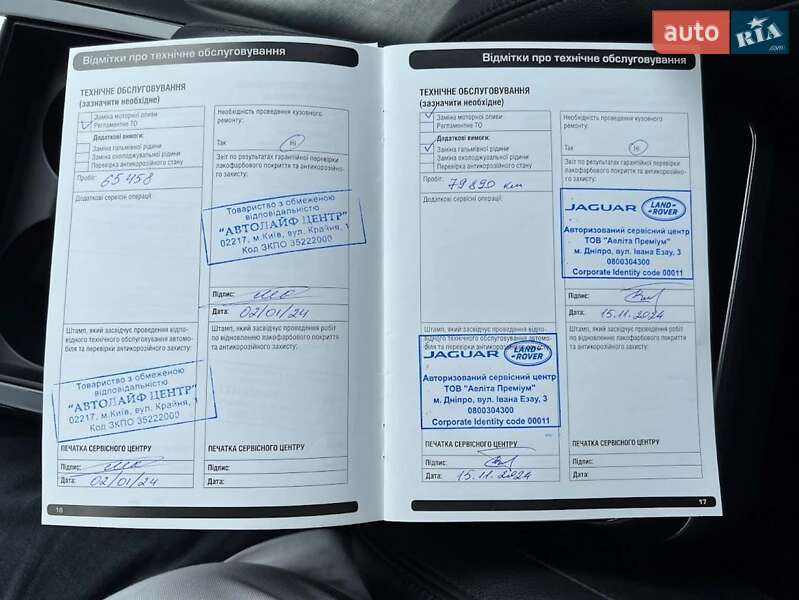 auto RIA.com
Відмітки про технічне обслуговування
ТЕХНІЧНЕ ОБСЛУГОВУВАННЯ
(зазначити необхідне)
Заміна моторної оливи
Регламентне ТО
Додаткові вимоги:
Заміна гальмівної рідини
Заміна охолоджувальної рідини
Перевірка антикорозійного стану
Пробіг: 65 458
Додаткові сервісні операції:
Штамп, який засвідчує проведення відпо-
відного технічного обслуговування автомо-
біля та перевірки антикорозійного захисту:
Товариство з обмеженою
відповідальністю
"АВТОЛАЙФ ЦЕНТР"
02217, м.Київ, вул. Крайня, 1
Код ЗКПО 35222000
ПЕЧАТКА СЕРВІСНОГО ЦЕНТРУ
Підпис:
Дата: 02/01/24
16
Необхідність проведення кузовного
ремонту:
Так Ні
Звіт по результатах гарантійної перевірки
лакофарбового покриття та антикорозійно-
го захисту:
Товариство з обмеженою
відповідальністю
"АВТОЛАЙФ ЦЕНТР"
02217, м.Київ, вул. Крайня, 1
Код ЗКПО 35222000
Підпис:
Дата: 02/01/24
Штамп, який засвідчує проведення робіт
по відновленню лакофарбового покриття
та антикорозійного захисту:
ПЕЧАТКА СЕРВІСНОГО ЦЕНТРУ
Підпис:
Дата:
Відмітки про технічне обслуговування
ТЕХНІЧНЕ ОБСЛУГОВУВАННЯ
(зазначити необхідне)
Заміна моторної оливи
Регламентне ТО
Додаткові вимоги:
Заміна гальмівної рідини
Заміна охолоджувальної рідини
Перевірка антикорозійного стану
Пробіг: 79 890 км
Додаткові сервісні операції:
Штамп, який засвідчує проведення відпо-
відного технічного обслуговування автомо-
біля та перевірки антикорозійного захисту:
JAGUAR LAND-ROVER
Авторизований сервісний центр
ТОВ "Аеліта Преміум"
м. Дніпро, вул. Івана Езау, 3
0800304300
Corporate Identity code 00011
ПЕЧАТКА СЕРВІСНОГО ЦЕНТРУ
Підпис:
Дата: 15.11.2024
Необхідність проведення кузовного
ремонту:
Так Ні
Звіт по результатах гарантійної перевірки
лакофарбового покриття та антикорозійно-
го захисту:
JAGUAR LAND-ROVER
Авторизований сервісний центр
ТОВ "Аеліта Преміум"
м. Дніпро, вул. Івана Езау, 3
0800304300
Corporate Identity code 00011
Підпис:
Дата: 15.11.2024
Штамп, який засвідчує проведення робіт
по відновленню лакофарбового покриття
та антикорозійного захисту:
ПЕЧАТКА СЕРВІСНОГО ЦЕНТРУ
Підпис:
Дата:
17